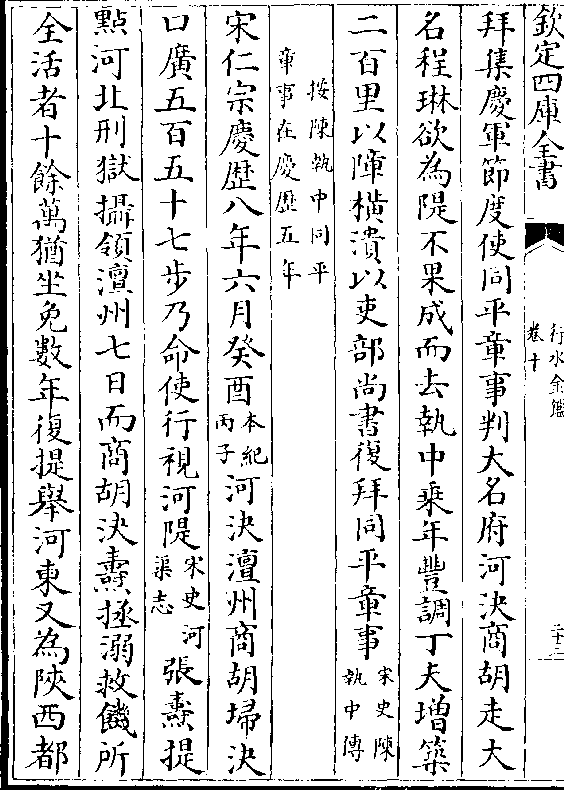 欽定四庫全書
行水金鑑
卷十
二十二
拜集慶軍節度使同平章事判大名府河決商胡走大
名程琳欲為隄不果成而去執中乗年豐調丁夫増築
二百里以障横潰以吏部尚書復拜同平章事宋史陳
執中傳
按陳執中同平
章事在慶歴五年
宋仁宗慶歴八年六月癸酉本紀
丙子河決澶州商胡埽決
口廣五百五十七歩乃命使行視河隄宋史河
渠志張燾提
點河北刑獄攝領澶州七日而商胡決燾拯溺救饑所
全活者十餘萬猶坐免數年復提舉河東又為陜西都